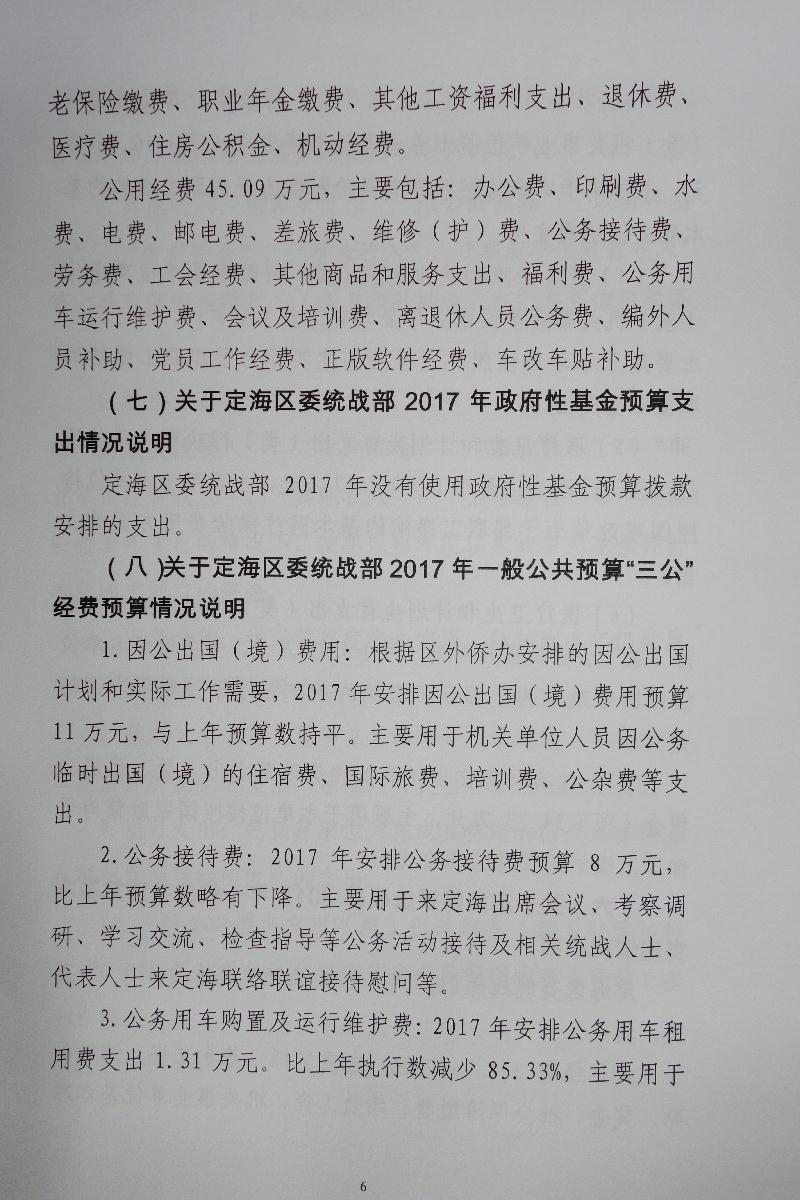 老保险缴费、职业年金缴费、其他工资福利支出、退休费、
医疗费、住房公积金、机动经费。
公用经费 45.09 万元，主要包括：办公费、印刷费、水
费、电费、邮电费、差旅费、维修（护）费、公务接待费、
劳务费、工会经费、其他商品和服务支出、福利费、公务用
车运行维护费、会议及培训费、离退休人员公务费、编外人
员补助、党员工作经费、正版软件经费、车改车贴补助。
（七）关于定海区委统战部 2017 年政府性基金预算支
出情况说明
定海区委统战部 2017 年没有使用政府性基金预算拨款
安排的支出。
（八)关于定海区委统战部 2017 年一般公共预算“三公”
经费预算情况说明
1.因公出国（境）费用：根据区外侨办安排的因公出国
计划和实际工作需要，2017 年安排因公出国（境）费用预算
11 万元，与上年预算数持平。主要用于机关单位人员因公务
临时出国（境）的住宿费、国际旅费、培训费、公杂费等支
出。
2.公务接待费：2017 年安排公务接待费预算 8 万元，
比上年预算数略有下降。主要用于来定海出席会议、考察调
研、学习交流、检查指导等公务活动接待及相关统战人士、
代表人士来定海联络联谊接待慰问等。
3.公务用车购置及运行维护费：2017 年安排公务用车租
用费支出 1.31 万元。比上年执行数减少 85.33%，主要用于
6